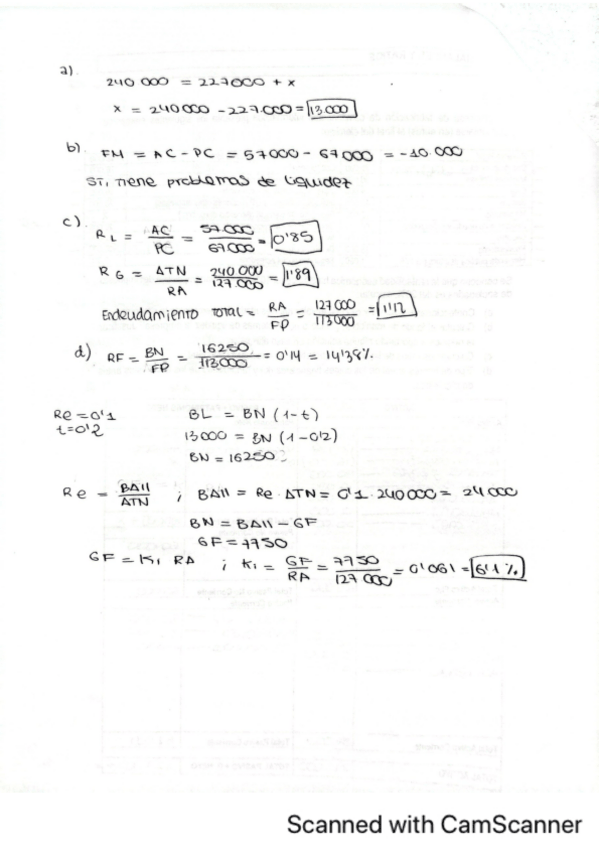 a).
240 000 = 227000 + x
x = 240 000 - 227.000 = 13 000
b). FM = AC - PC = 57000 - 67 000 = -10.000
SI, TIENE PROBLEMAS DE LIQUIDEZ
c). RL = AC/PC = 57.000/67000 = 0'85
RG = ATN/RA = 240 000/127 000 = 1'89
Endeudamiento TOTAL = RA/FP = 127 000/113 000 = 1'12
d) RF = BN/FP = 16250/113000 = 0'14 = 14'38%.
Re = 0'1 BL = BN (1-t)
t = 0'2 13000 = BN (1-0'2)
BN = 16250
Re = BAII/ATN ; BAII = Re · ATN = 0'1 · 240 000 = 24 000
BN = BAII - GF
GF = 7750
GF = K, RA ; K, = GF/RA = 7750/127 000 = 0'061 = 6'1 %.
Scanned with CamScanner